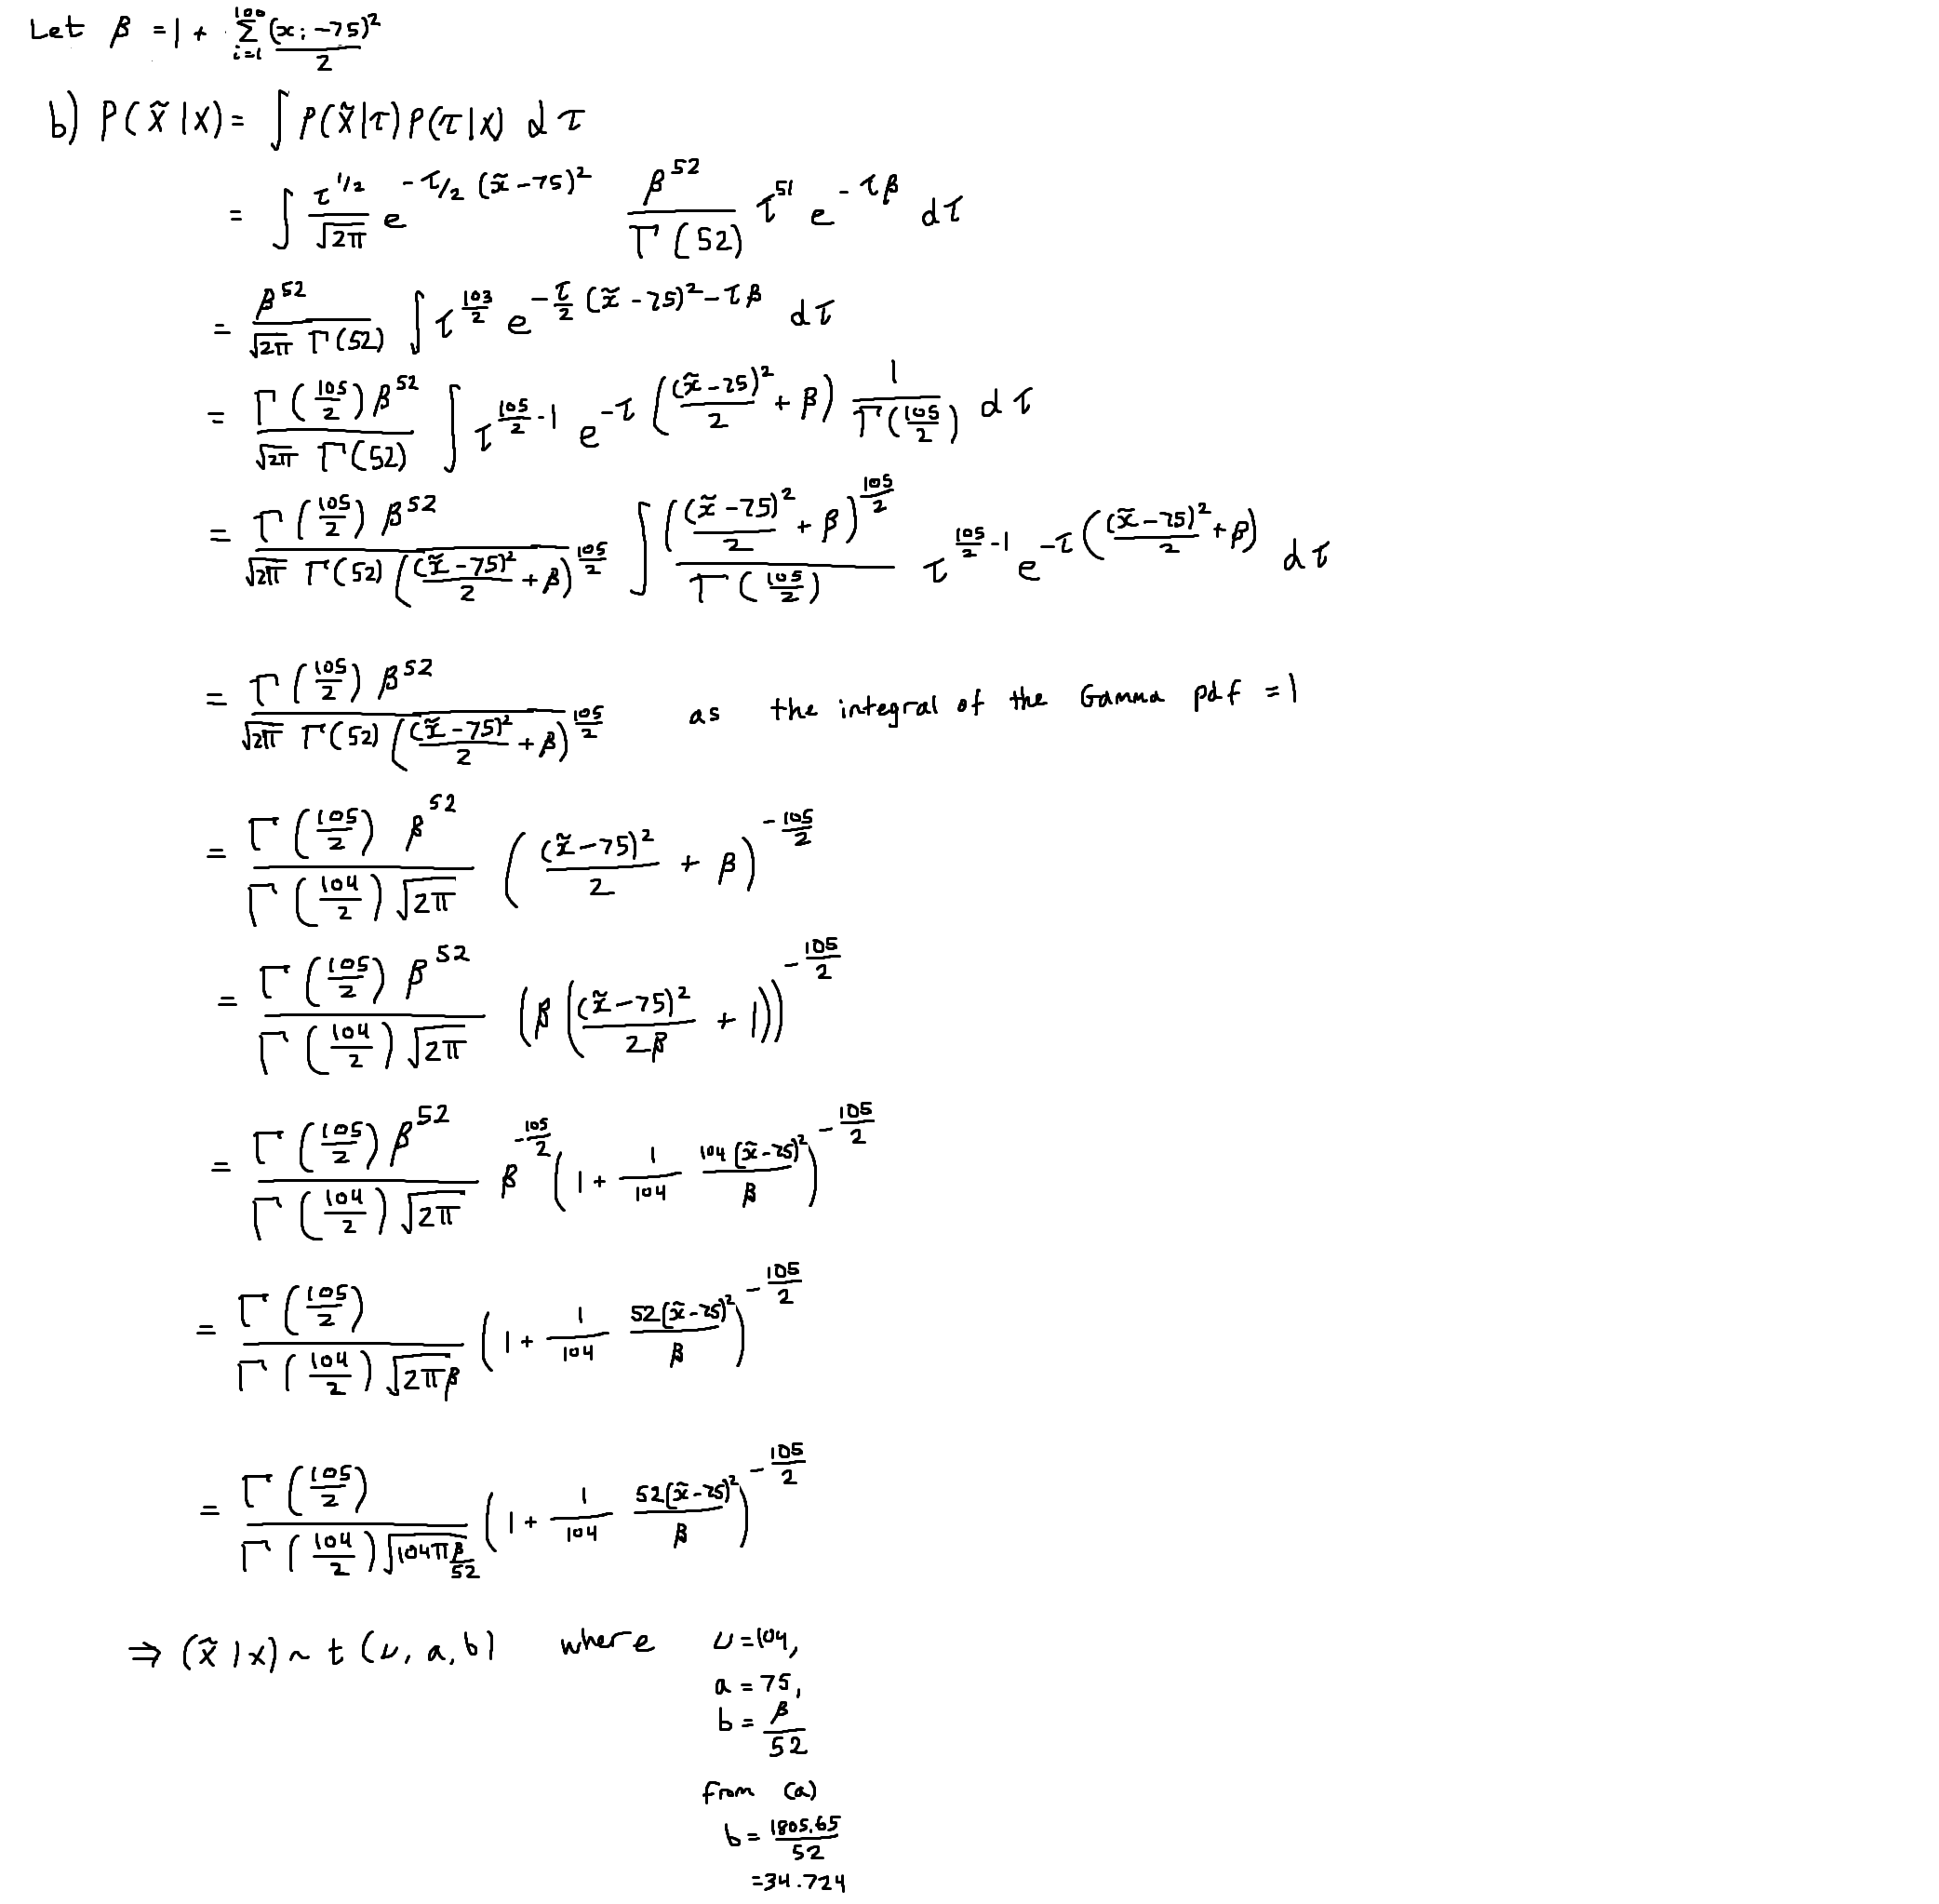 Let β = 1 + \sum_{i=1}^{100} \frac{(x_i - 75)^2}{2}
b) P(\tilde{x}|x) = \int P(\tilde{x}|τ) P(τ|x) dτ
= \int \frac{τ^{1/2}}{\sqrt{2π}} e^{-τ/2 (\tilde{x} - 75)^2} \frac{β^{52}}{Γ(52)} τ^{51} e^{-τβ} dτ
= \frac{β^{52}}{\sqrt{2π} Γ(52)} \int τ^{\frac{103}{2}} e^{-\frac{τ}{2} (\tilde{x} - 75)^2 - τβ} dτ
= \frac{Γ(\frac{105}{2}) β^{52}}{\sqrt{2π} Γ(52)} \int τ^{\frac{105}{2} - 1} e^{-τ (\frac{(\tilde{x} - 75)^2}{2} + β)} \frac{1}{Γ(\frac{105}{2})} dτ
= \frac{Γ(\frac{105}{2}) β^{52}}{\sqrt{2π} Γ(52) (\frac{(\tilde{x} - 75)^2}{2} + β)^{\frac{105}{2}}} \int \frac{(\frac{(\tilde{x} - 75)^2}{2} + β)^{\frac{105}{2}}}{Γ(\frac{105}{2})} τ^{\frac{105}{2} - 1} e^{-τ(\frac{(\tilde{x} - 75)^2}{2} + β)} dτ
= \frac{Γ(\frac{105}{2}) β^{52}}{\sqrt{2π} Γ(52) (\frac{(\tilde{x} - 75)^2}{2} + β)^{\frac{105}{2}}} as the integral of the Gamma pdf = 1
= \frac{Γ(\frac{105}{2}) β^{52}}{Γ(\frac{104}{2}) \sqrt{2π}} (\frac{(\tilde{x} - 75)^2}{2} + β)^{-\frac{105}{2}}
= \frac{Γ(\frac{105}{2}) β^{52}}{Γ(\frac{104}{2}) \sqrt{2π}} (β(\frac{(\tilde{x} - 75)^2}{2β} + 1))^{-\frac{105}{2}}
= \frac{Γ(\frac{105}{2}) β^{52}}{Γ(\frac{104}{2}) \sqrt{2π}} β^{-\frac{105}{2}} (1 + \frac{1}{104} \frac{104(\tilde{x} - 75)^2}{β})^{-\frac{105}{2}}
= \frac{Γ(\frac{105}{2})}{Γ(\frac{104}{2}) \sqrt{2πβ}} (1 + \frac{1}{104} \frac{52(\tilde{x} - 75)^2}{β})^{-\frac{105}{2}}
= \frac{Γ(\frac{105}{2})}{Γ(\frac{104}{2}) \sqrt{104π\frac{β}{52}}} (1 + \frac{1}{104} \frac{52(\tilde{x} - 75)^2}{β})^{-\frac{105}{2}}
⇒ (\tilde{x}|x) ~ t(ν, a, b) where ν = 104,
a = 75,
b = \frac{β}{52}
from (a)
b = \frac{1805.65}{52}
= 34.724